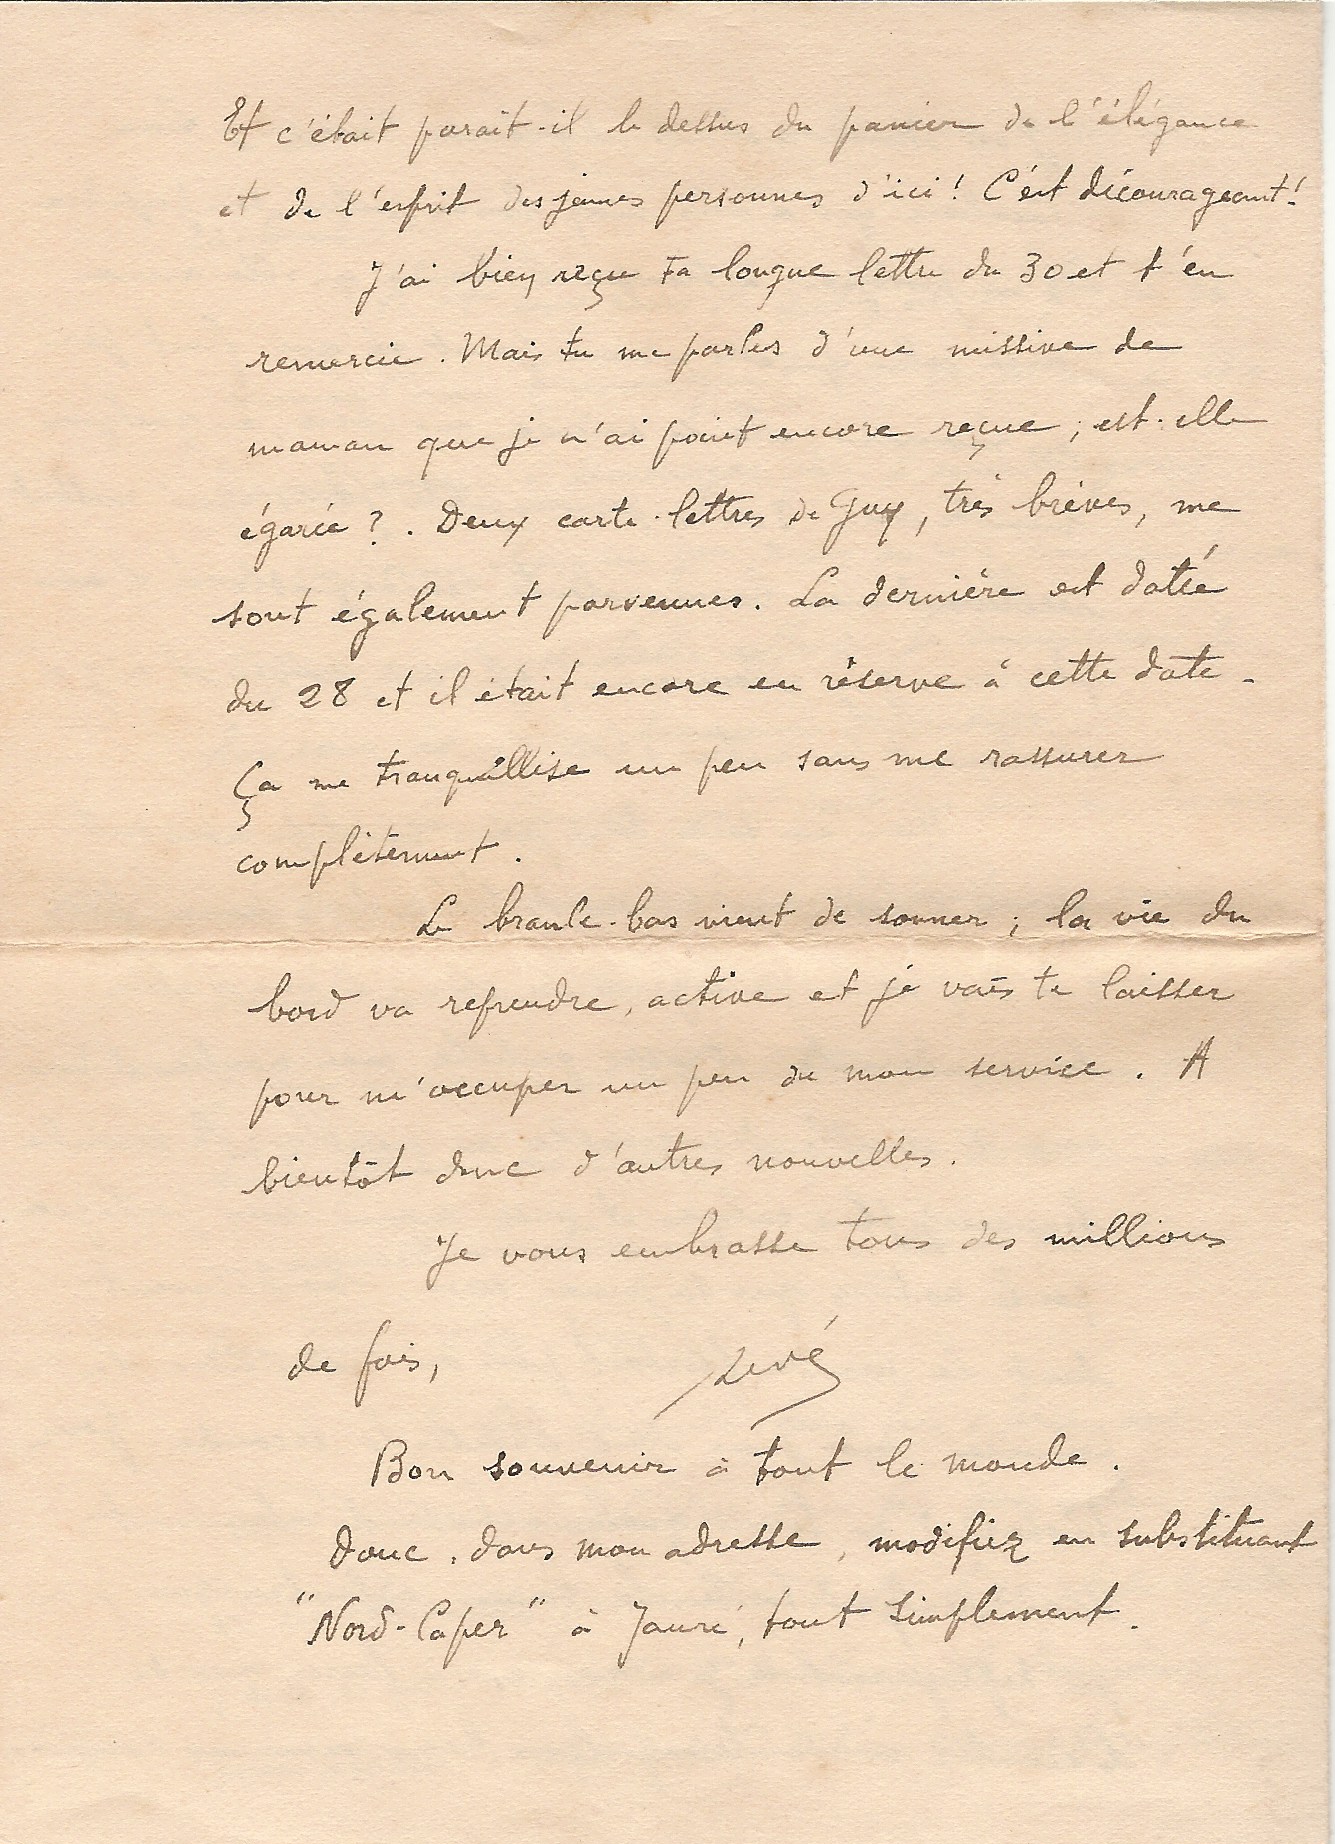 Et c'était paraît-il le dessus du panier de l'élégance
et de l'esprit des jeunes personnes d'ici ! C'est décourageant !
J'ai bien reçu ta longue lettre du 30 et t'en
remercie. Mais tu me parles d'une missive de
maman que je n'ai point encore reçue ; est-elle
égarée ? . Deux carte-lettres de Guy, très brèves, me
sont également parvenues. La dernière est datée
du 28 et il était encore en réserve à cette date.
Ça me tranquillise un peu sans me rassurer
complètement.
Le branle-bas vient de sonner ; la vie du
bord va reprendre, active et je vais te laisser
pour m'occuper un peu de mon service. A
bientôt donc d'autres nouvelles.
Je vous embrasse tous des millions
de fois,
Bon souvenir à tout le monde.
donc, dans mon adresse, modifiez en substituant
"Nord-Caper" à Jauré, tout simplement.